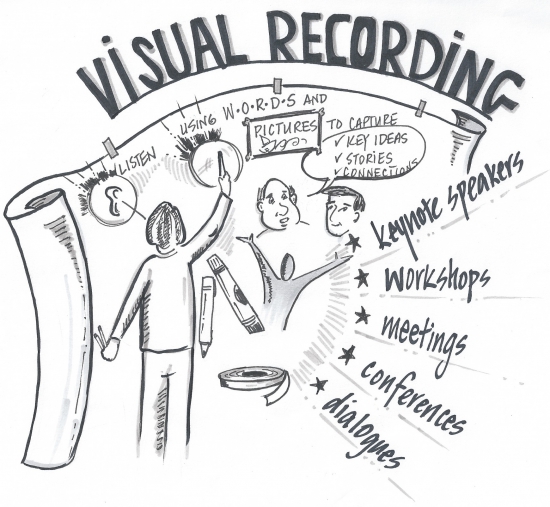 VISUAL RECORDING
LISTEN
USING W·O·R·D·S AND
PICTURES
TO CAPTURE
✓ KEY IDEAS
✓ STORIES
✓ CONNECTIONS
★ keynote speakers
★ workshops
★ meetings
★ conferences
★ dialogues